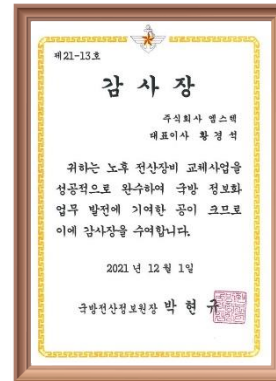 제21-13호
감 사 장
주식회사 엠스텍
대표이사 황 경 석
귀하는 노후 전산장비 교체사업을
성공적으로 완수하여 국방 정보화
업무 발전에 기여한 공이 크므로
이에 감사장을 수여합니다.
2021 년 12 월 1일
국방전산정보원장 박 현 규